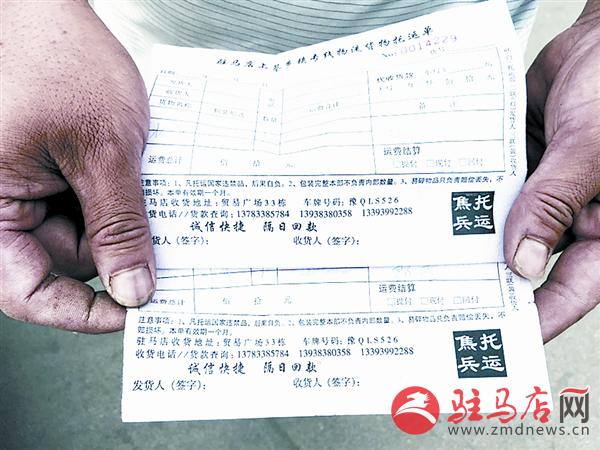 驻马店上蔡乡镇专线物流货物托运单
No:0014229
发货人
收货人
货物名称
代收货款
备注
运费合计
运费总计 佰 拾 元
运费结算
□现付 □回付
注意事项：1、凡托运国家违禁品，后果自负。2、包装完整本部不负责内部数量。3、易碎物品只负责赔偿丢失，不
如损坏。本单有效期一个月。
驻马店收货地址：贸易广场33栋 车牌号码：豫QLS526
收货电话//货款查询：13783385784 13938380358 13393992288
诚信快捷 隔日回款
发货人（签字）： 收货人（签字）：
焦兵托运
运费总计 佰 拾 元
运费结算
□现付 □回付
注意事项：1、凡托运国家违禁品，后果自负。2、包装完整本部不负责内部数量。3、易碎物品只负责赔偿丢失，不
如损坏。本单有效期一个月。
驻马店收货地址：贸易广场33栋 车牌号码：豫QLS526
收货电话//货款查询：13783385784 13938380358 13393992288
诚信快捷 隔日回款
发货人（签字）： 收货人（签字）：
焦兵托运
驻马店网
www.zmdnews.cn